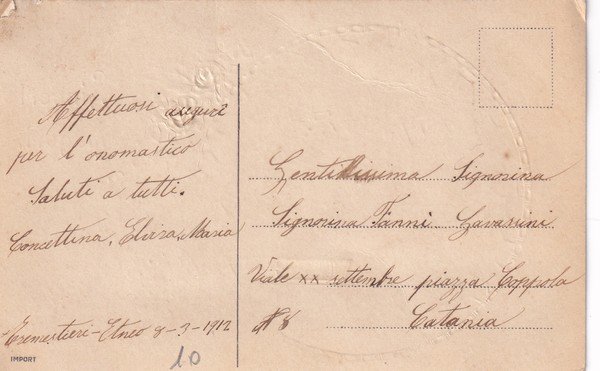 Affettuosi auguri
per l'onomastico
Saluti a tutti.
Concettina, Elvira, Maria
Tremestieri-Etneo 8-3-1912
IMPORT
10
Gentilissima Signorina
Signorina Fanni Gavarini
Viale XX settembre piazza Coppola
N 8 Catania